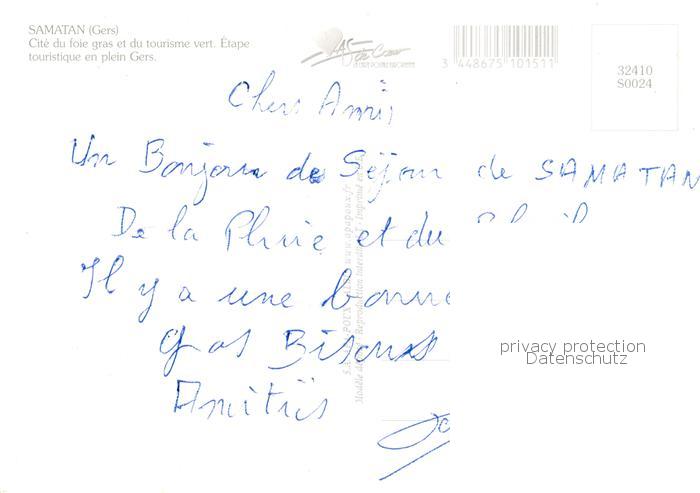 SAMATAN (Gers)
Cité du foie gras et du tourisme vert. Étape
touristique en plein Gers.
3 448675 101511
32410
S0024
Chers Amis
Un Bonjour de Séjour de SAMATAN
De la Pluie et du
Il y a une bonne
gros Bisous
Amitiés
privacy protection
Datenschutz